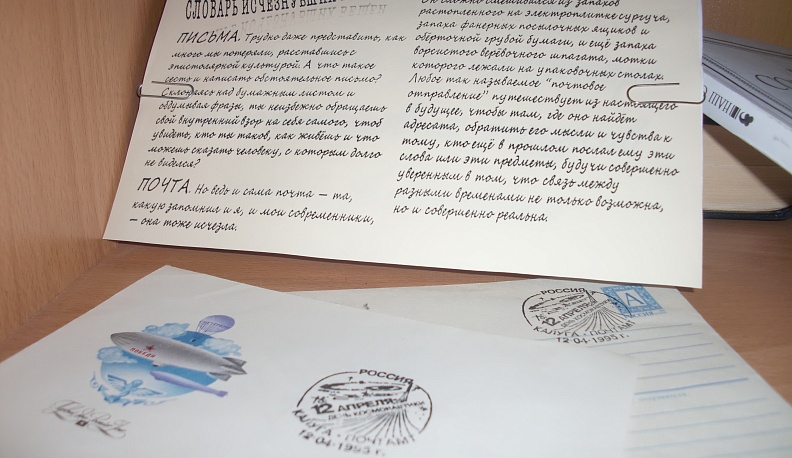 СЛОВАРЬ ИСЧЕЗНУВШИХ ВЕЩЕЙ
ПИСЬМА. Трудно даже представить, как
много мы потеряли, расставшись с
эпистолярной культурой. А что такое
сесть и написать обстоятельное письмо?
Склоняясь над бумажным листом и
обдумывая фразы, ты неизбежно обращаешь
свой внутренний взор на себя самого, чтоб
увидеть, кто ты таков, как живёшь и что
можешь сказать человеку, с которым долго
не виделся?
ПОЧТА. Но ведь и сама почта — та,
какую запомнил и я, и мои современники,
— она тоже исчезла.
Он сложно смешивался из запахов
растопленного на электроплитке сургуча,
запаха фанерных посылочных ящиков и
обёрточной грубой бумаги, и ещё запаха
ворсистого верёвочного шпагата, мотки
которого лежали на упаковочных столах.
Любое так называемое "почтовое
отправление" путешествует из настоящего
в будущее, чтобы там, где оно найдёт
адресата, обратить его мысли и чувства к
тому, кто ещё в прошлом послал ему эти
слова или эти предметы, будучи совершенно
уверенным в том, что связь между
разными временами не только возможна,
но и совершенно реальна.
РОССИЯ
12 АПРЕЛЯ
ДЕНЬ КОСМОНАВТИКИ
КАЛУГА • ПОЧТАМТ
12-04-1995 г.
РОССИЯ
12 АПРЕЛЯ
ДЕНЬ КОСМОНАВТИКИ
КАЛУГА • ПОЧТАМТ
12-04-1995
А